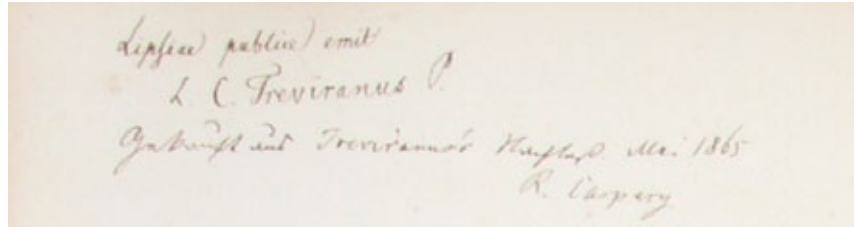 Lipsiae publice emit
L. C. Treviranus P.
Gekauft aus Treviranus's Nachlaß. Mai 1865
R. Caspary